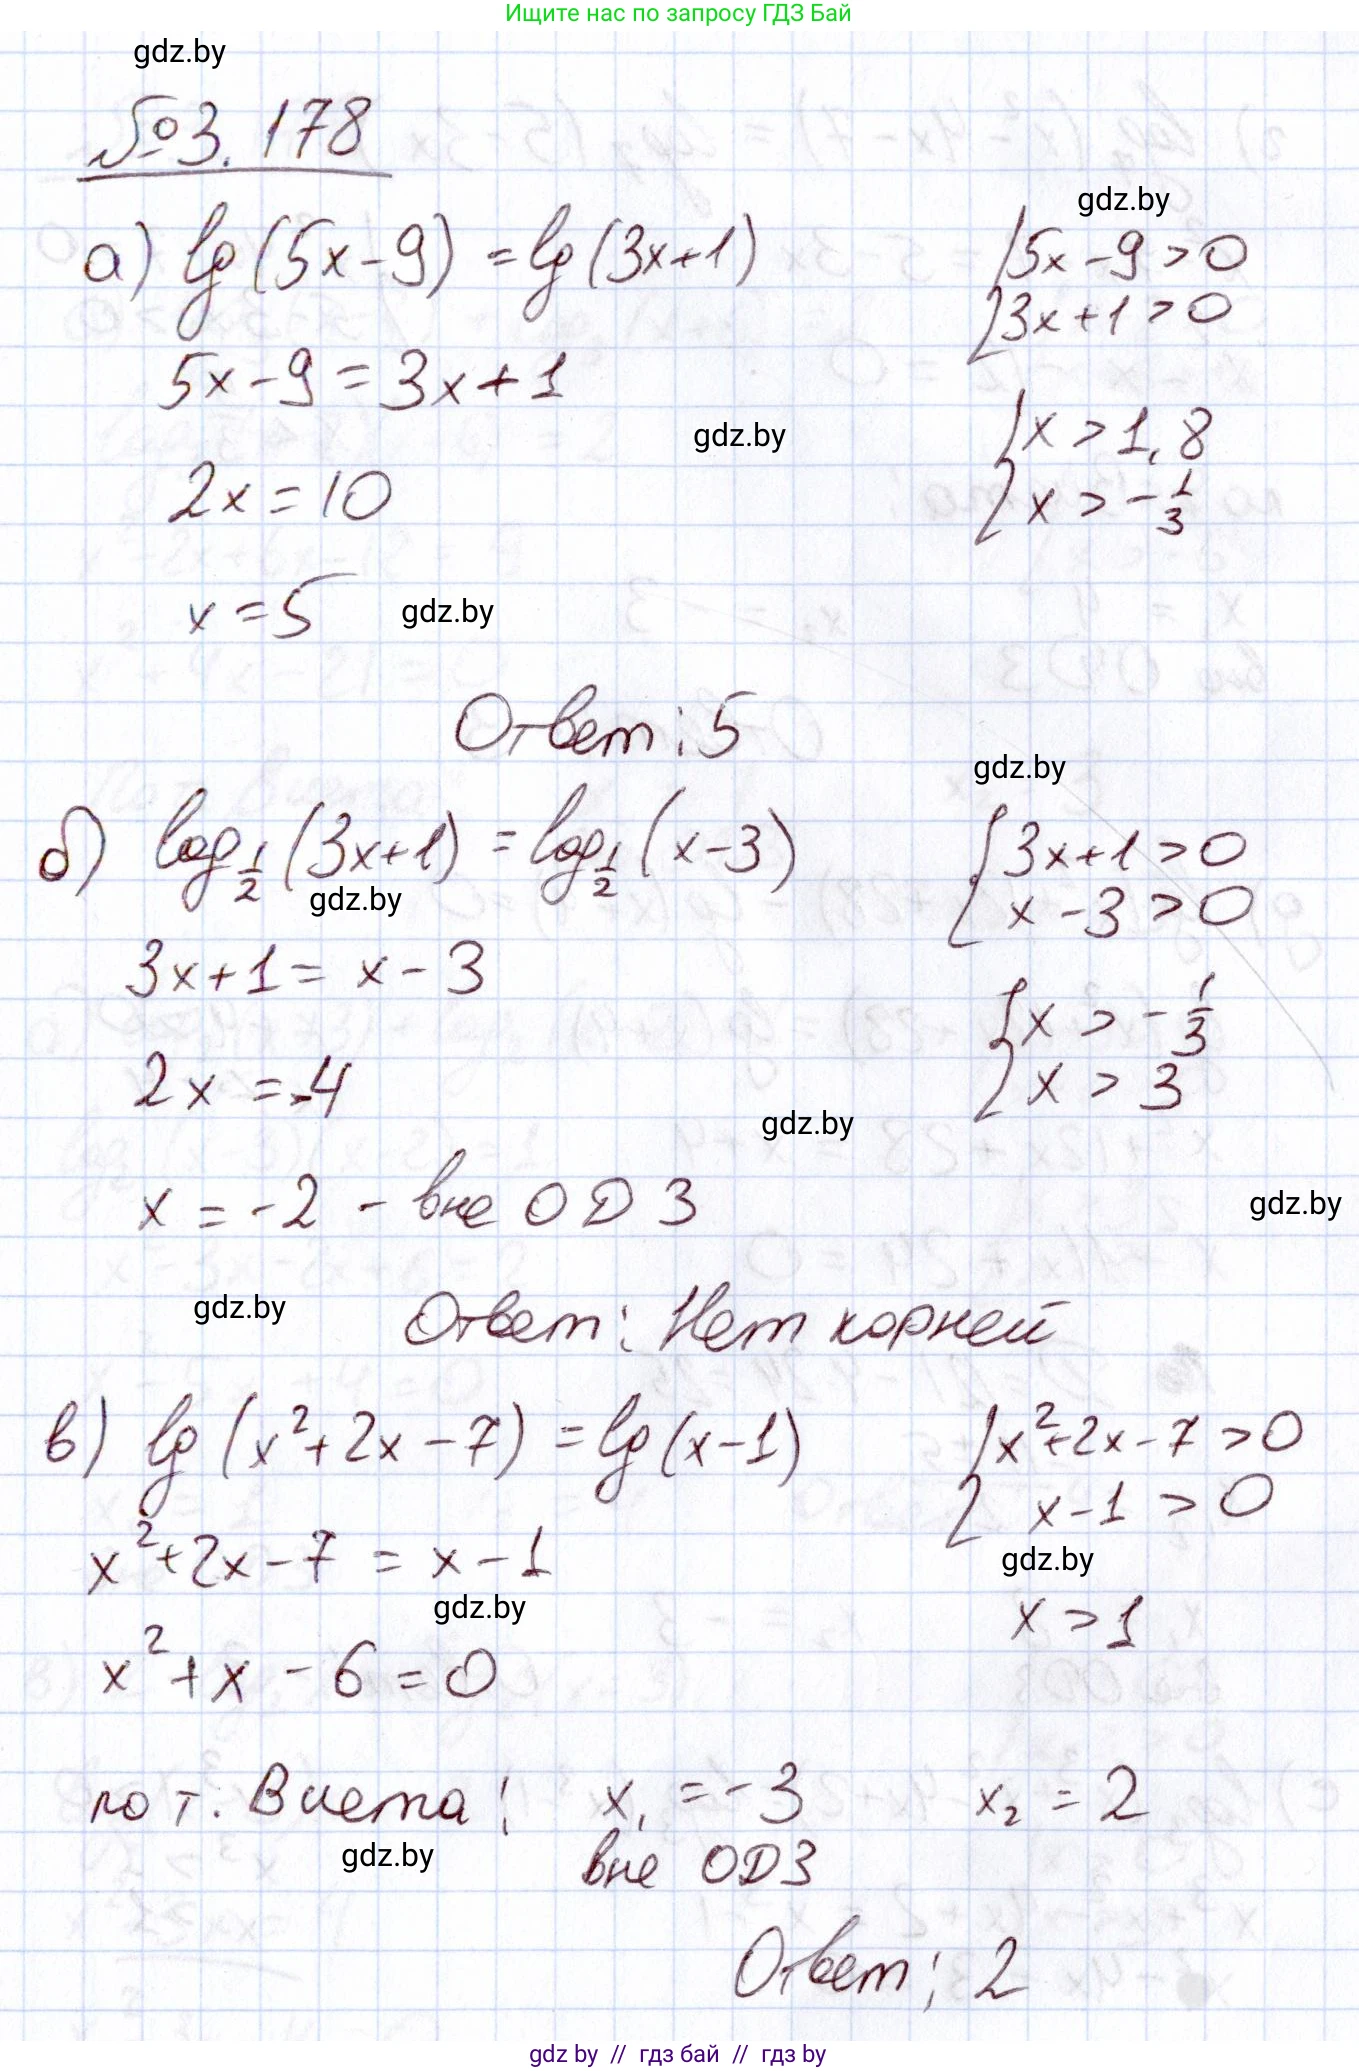 Ищите нас по запросу ГДЗ Бай
gdz.by
№3.178
gdz.by
а) lg(5x-9) = lg(3x+1)
{5x-9>0
3x+1>0
5x-9=3x+1
gdz.by
{x>1,8
x>-1/3
2x=10
x=5
gdz.by
Ответ: 5
gdz.by
б) log1/2(3x+1) = log1/2(x-3)
{3x+1>0
x-3>0
gdz.by
3x+1=x-3
{x>-1/3
x>3
2x=-4
gdz.by
x=-2 - вне ОДЗ
gdz.by
gdz.by
Ответ: Нет корней
в) lg(x²+2x-7) = lg(x-1)
{x²+2x-7>0
x-1>0
x²+2x-7=x-1
gdz.by
gdz.by
x>1
x²+x-6=0
по т. Виета: x₁=-3 x₂=2
gdz.by
вне ОДЗ
Ответ: 2
gdz by // гдз бай // гдз by